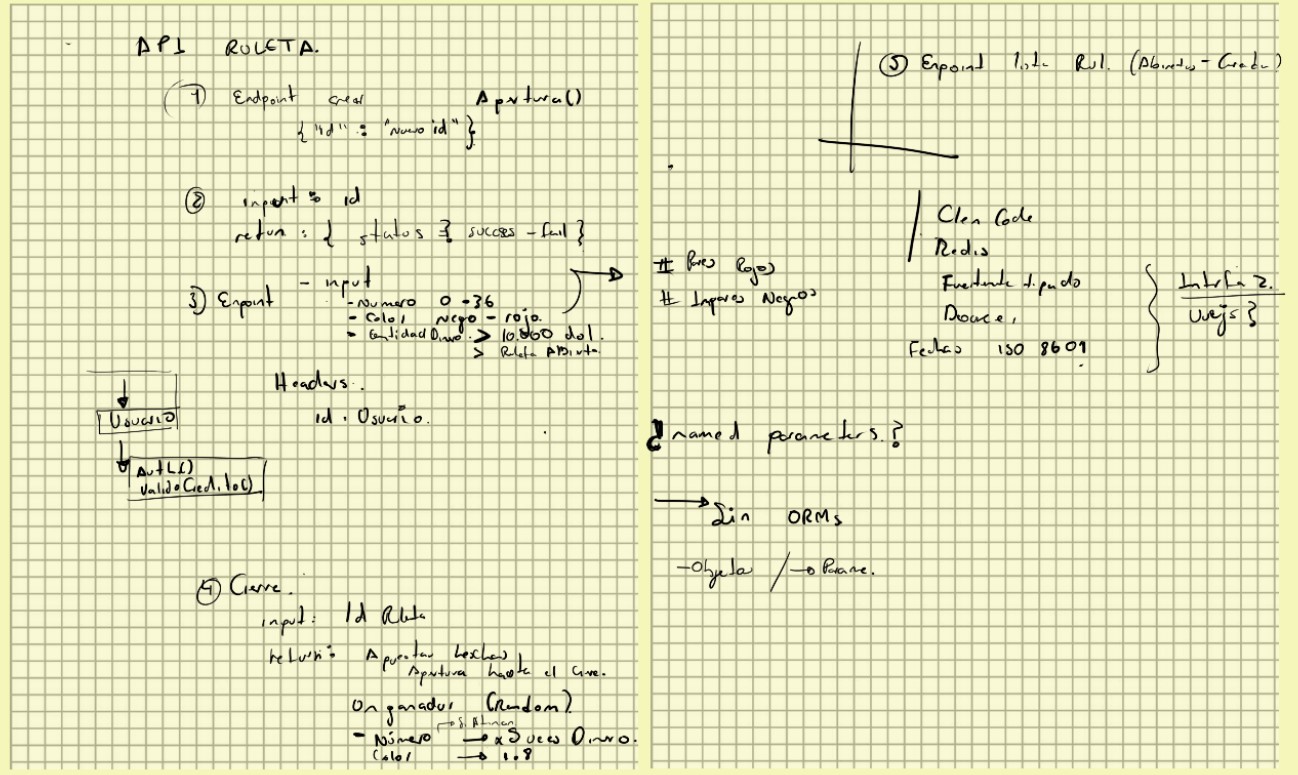 API RULETA.
① Endpoint crear Apertura()
{ "id" : "nuevo id" }
② input : id
return : { status } success - fail }
3) Enpoint - input
- Numero 0 - 36
- Color negro - rojo.
- Cantidad Dinero. > 10.000 dol.
> Ruleta Abierta
Headers.
id : Usuario.
Usuario
Auth()
Valida Credito()
④ Cierre.
input : Id Ruleta
return : Apuestas hechas
Apertura hasta el Cierre.
Un ganador (Random)
- Número → x 5 veces Dinero.
Color → 1.8
⑤ Enpoint lista Rul.
# Pares Rojos
# Impares Negros
Clen Code
Redis
Fuertemente tipado
Docker,
Fechas ISO 8601
¿ named parameters ?
→ Sin ORMs
- Objeto / → Parame.